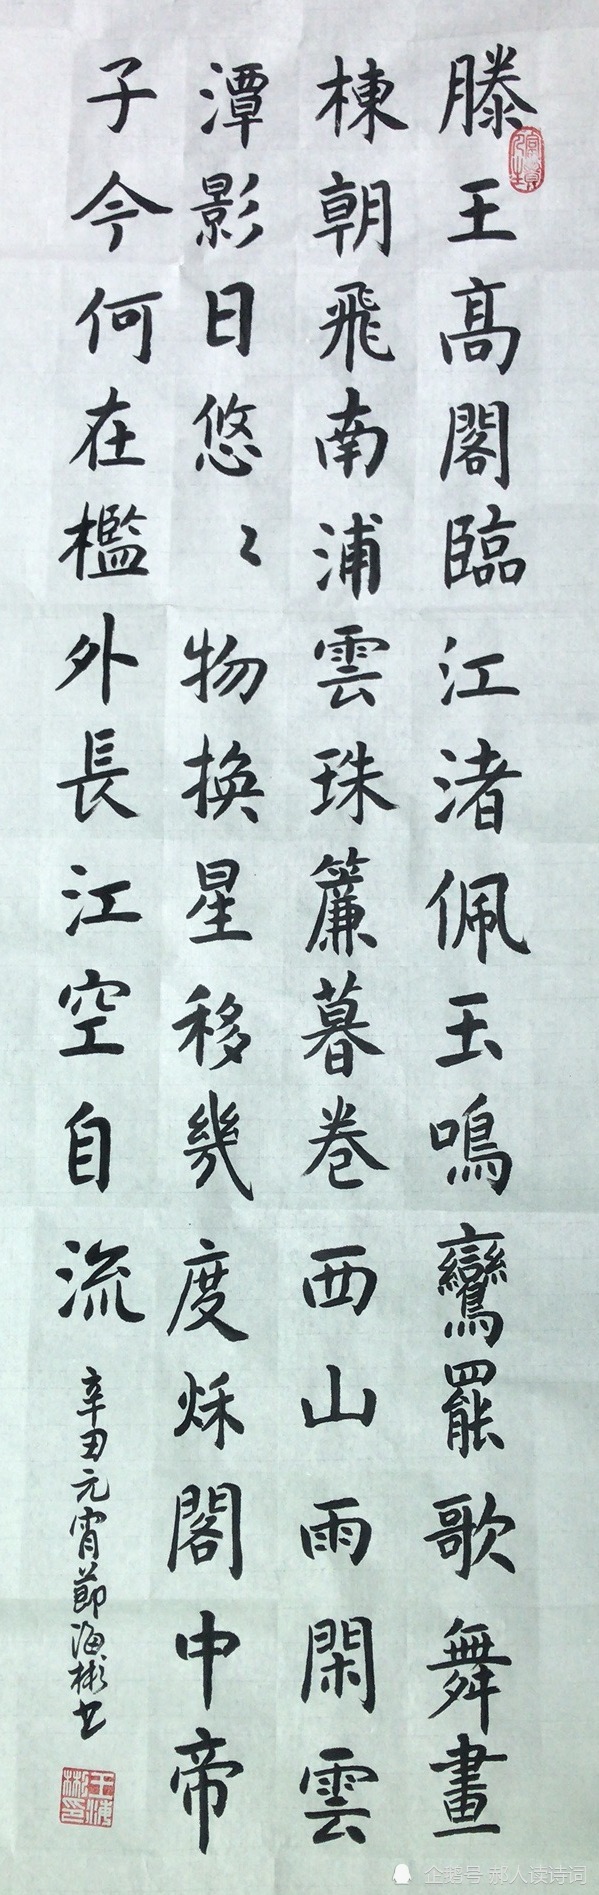 滕王高閣臨江渚佩玉鳴鸞罷歌舞畫
棟朝飛南浦雲珠簾暮卷西山雨閑雲
潭影日悠〻物換星移幾度秌閣中帝
子今何在檻外長江空自流
辛丑元宵節海彬书
王海彬印
企鹅号 郝人读诗词